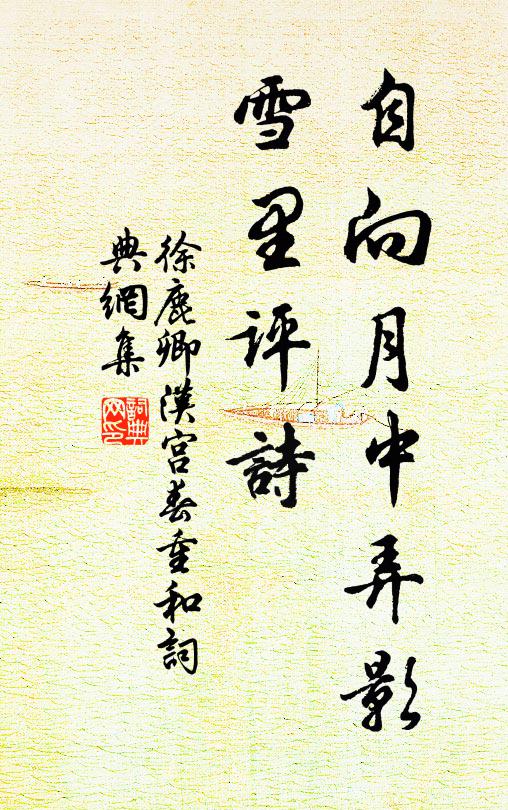 自向月中弄影
雪里評詩
徐鹿卿漢宮春重和詞
典網集
詞典
网印